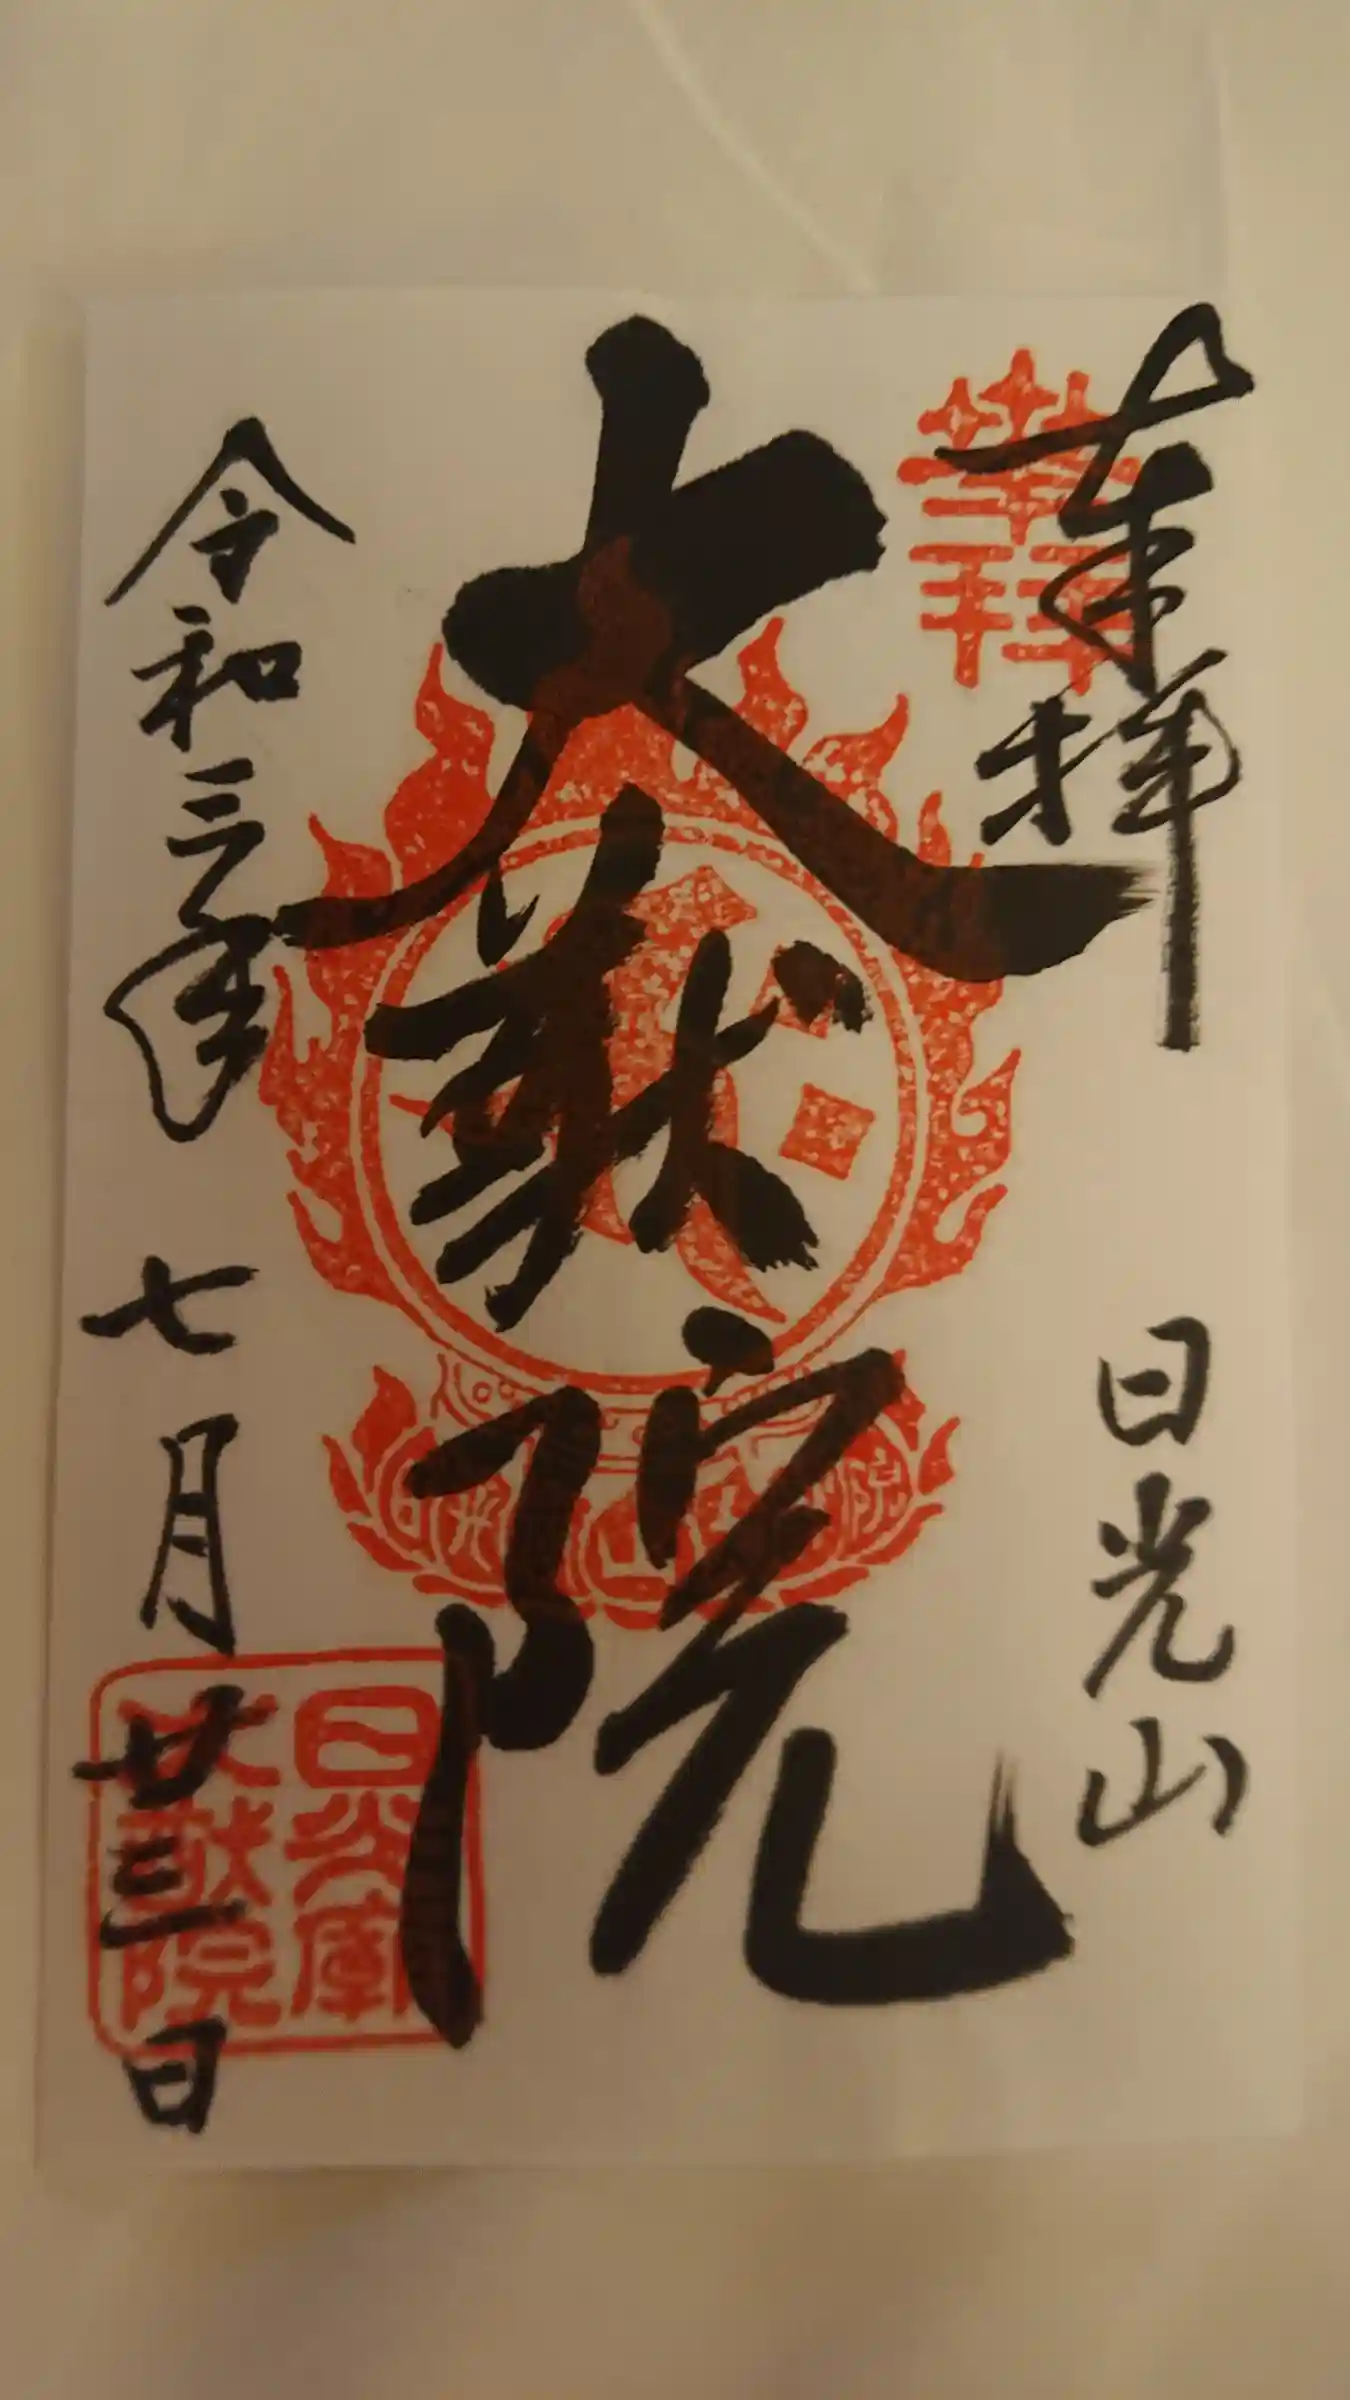 奉拝
日光山
大猷院
令和三年
七月廿三日
日光山
大猷院